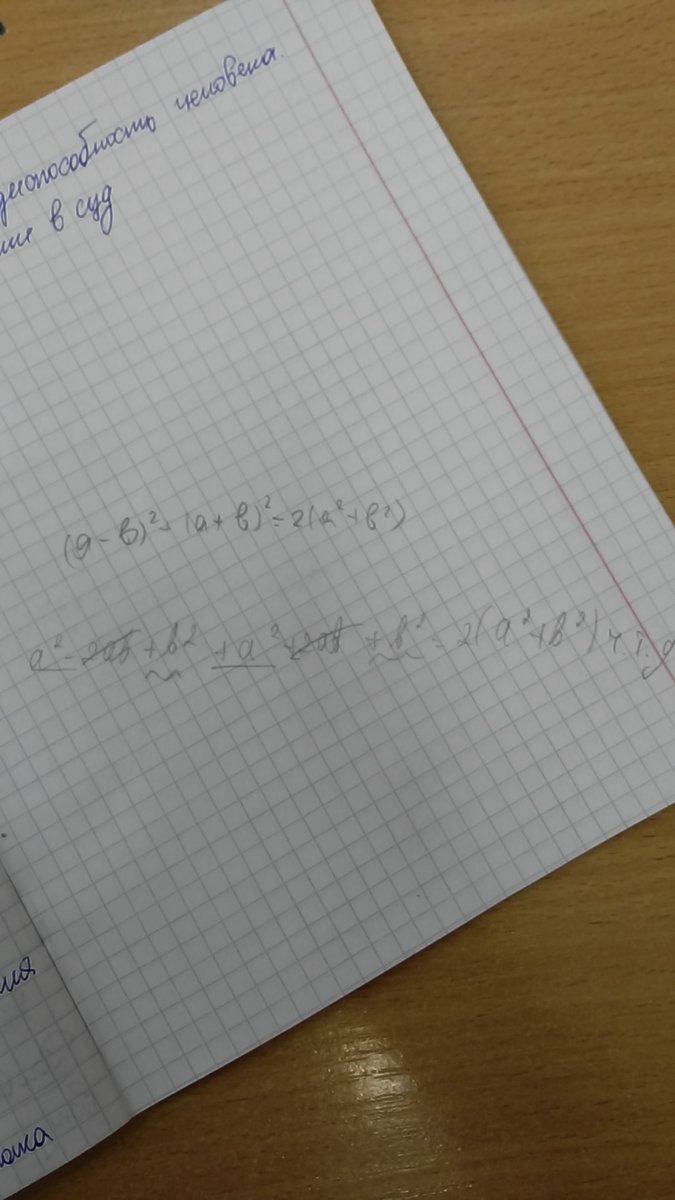 дееспособность человека.
в суд
(a-b)²+(a+b)²=2(a²+b²)
a²-2ab+b²+a²+2ab+b²=2(a²+b²) ч.т.д